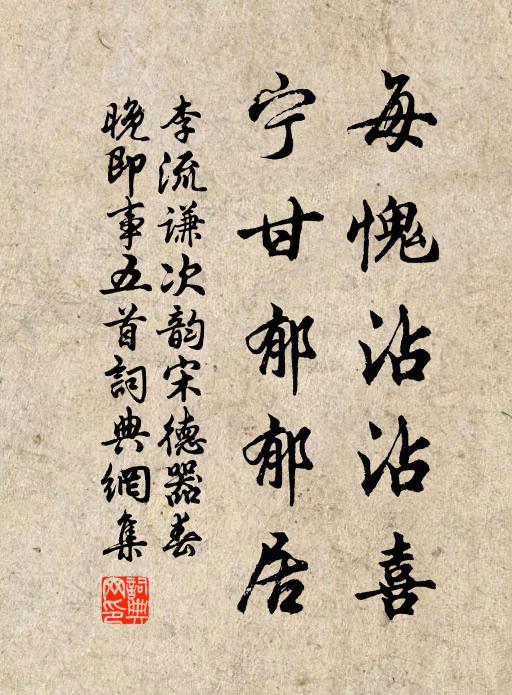 每愧沾沾喜
宁甘郁郁居
李流谦次韵宋德器春
晚即事五首詞典網集
詞典網印